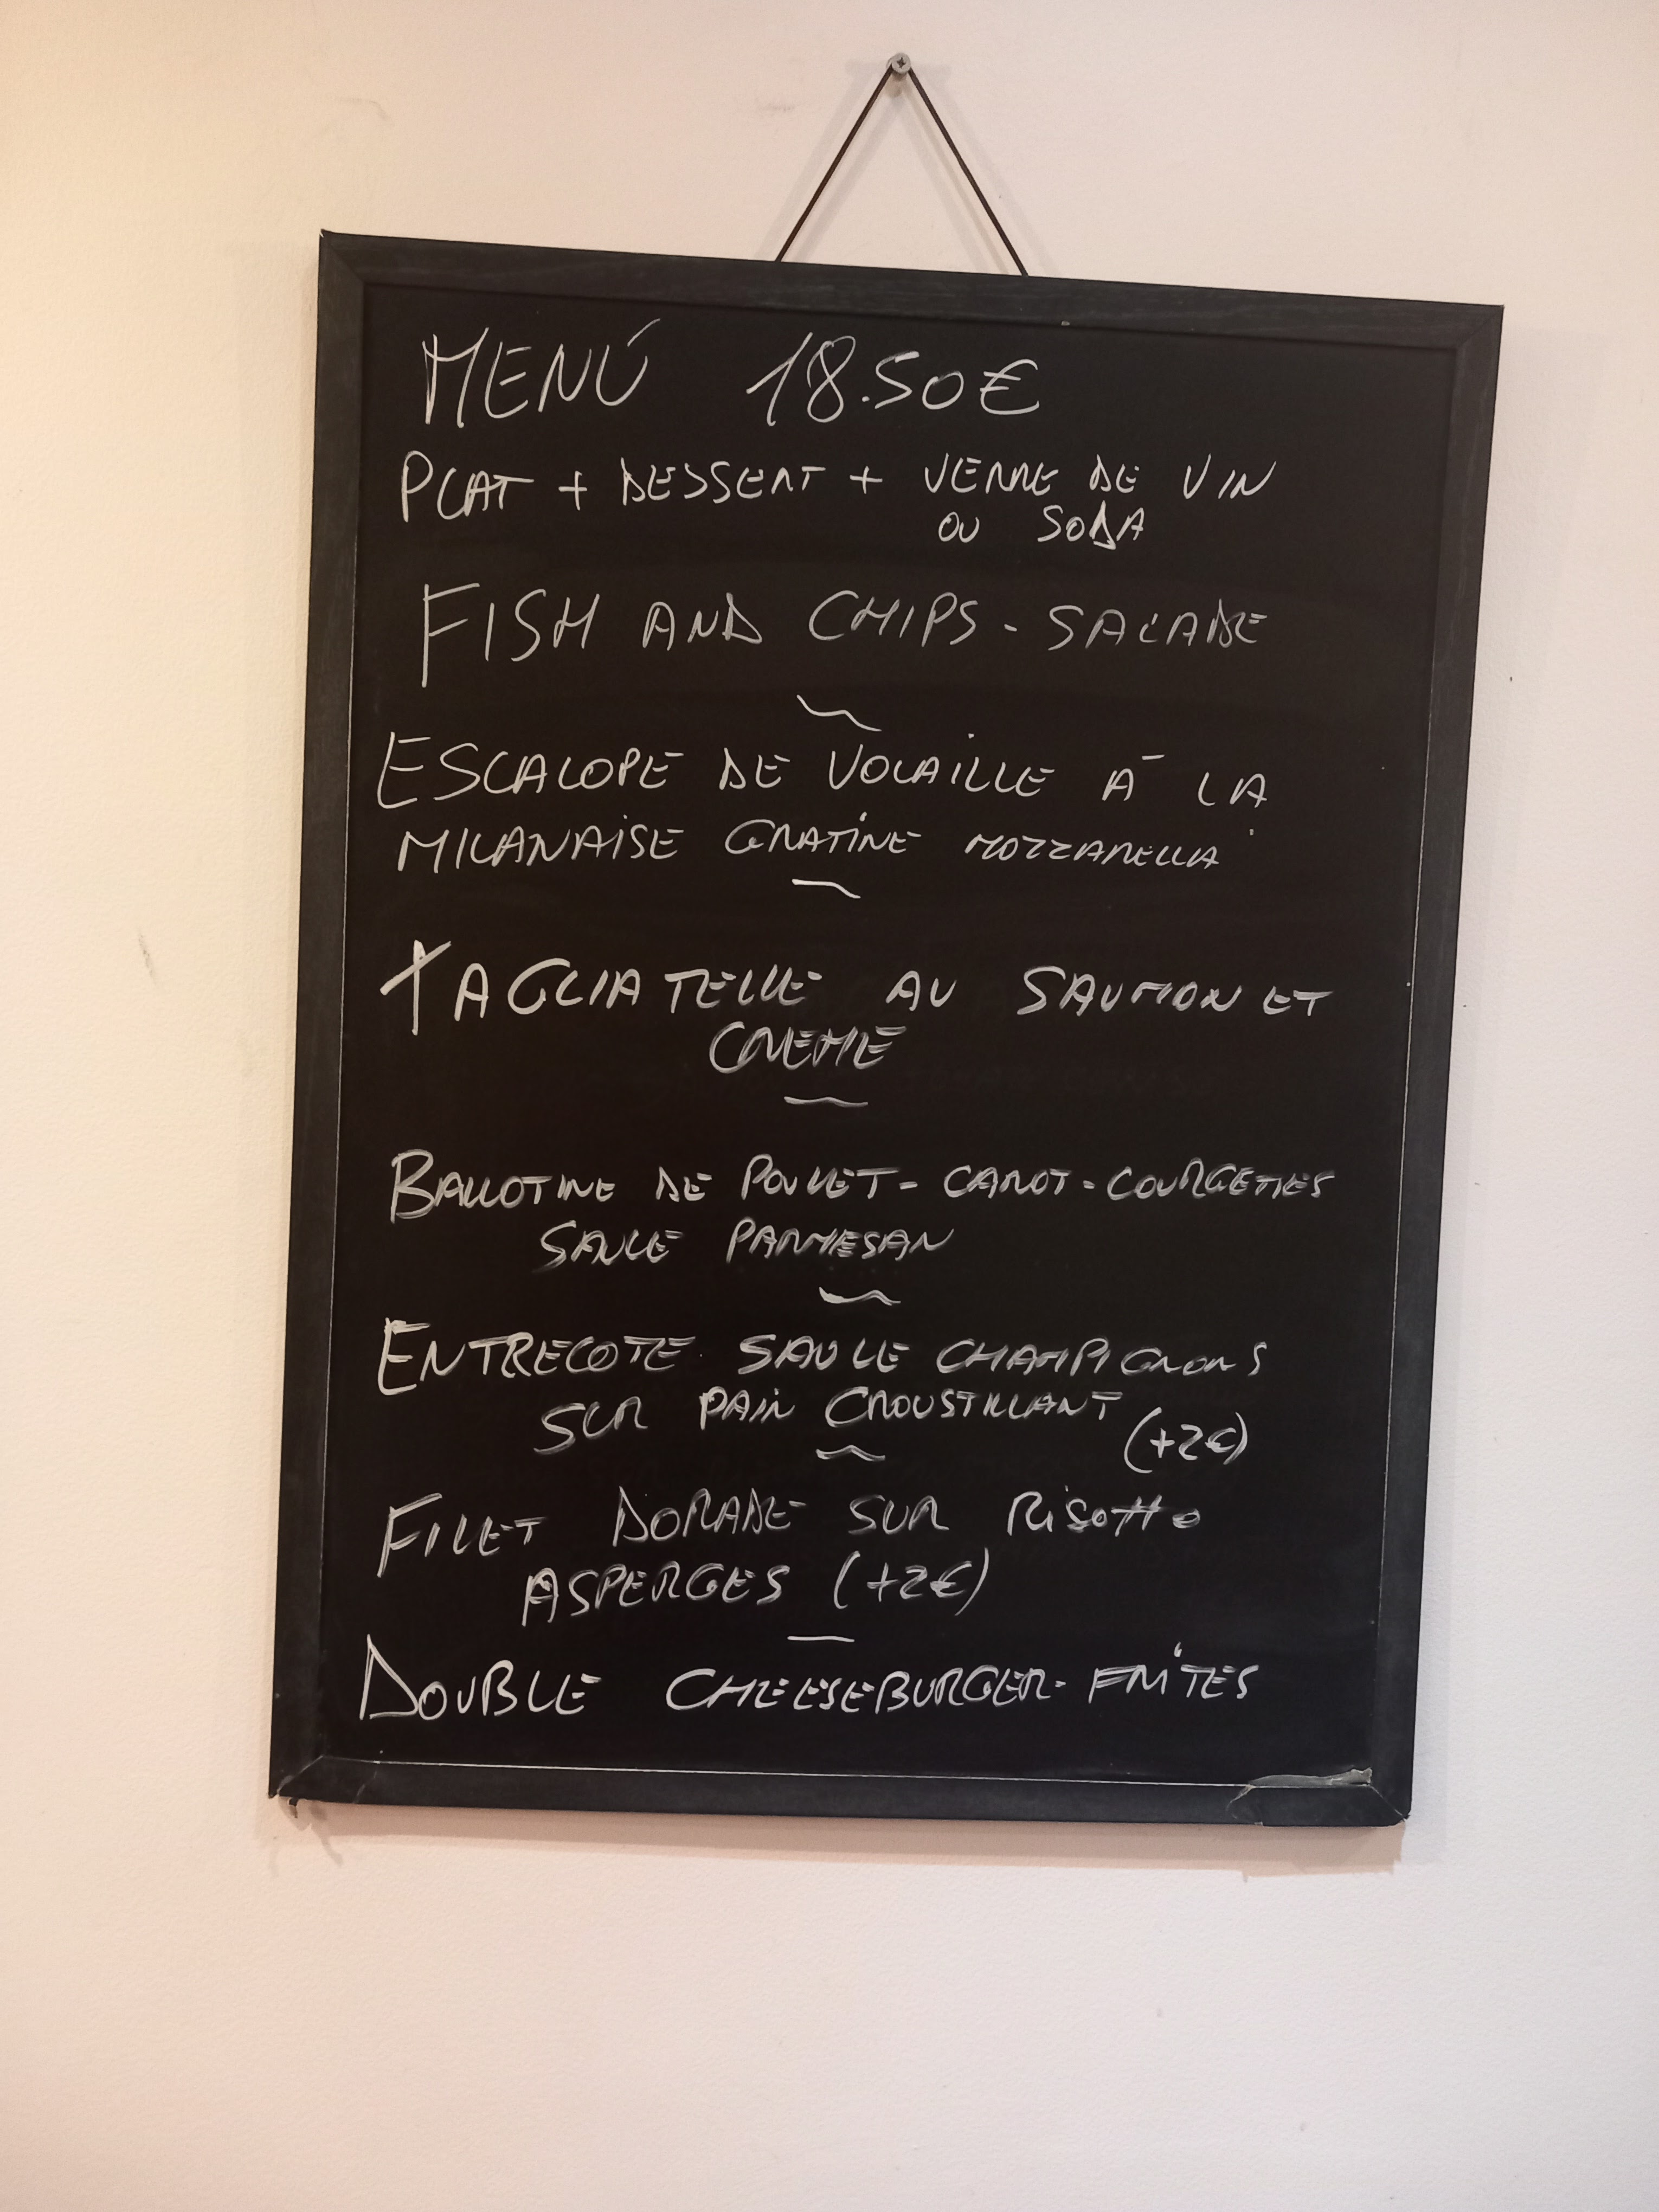 MENÚ 18.50€
PLAT + DESSERT + VERRE DE VIN
OU SODA
FISH AND CHIPS - SALADE
ESCALOPE DE VOLAILLE A LA
MILANAISE GRATINE MOZZARELLA
TAGLIATELLE AU SAUMON ET
CREME
BALLOTINE DE POULET - CAROT - COURGETTES
SAUCE PARMESAN
ENTRECOTE SAUCE CHAMPIGNONS
SUR PAIN CROUSTILLANT (+2€)
FILET DORADE SUR RISOTTO
ASPERGES (+2€)
DOUBLE CHEESEBURGER - FRITES